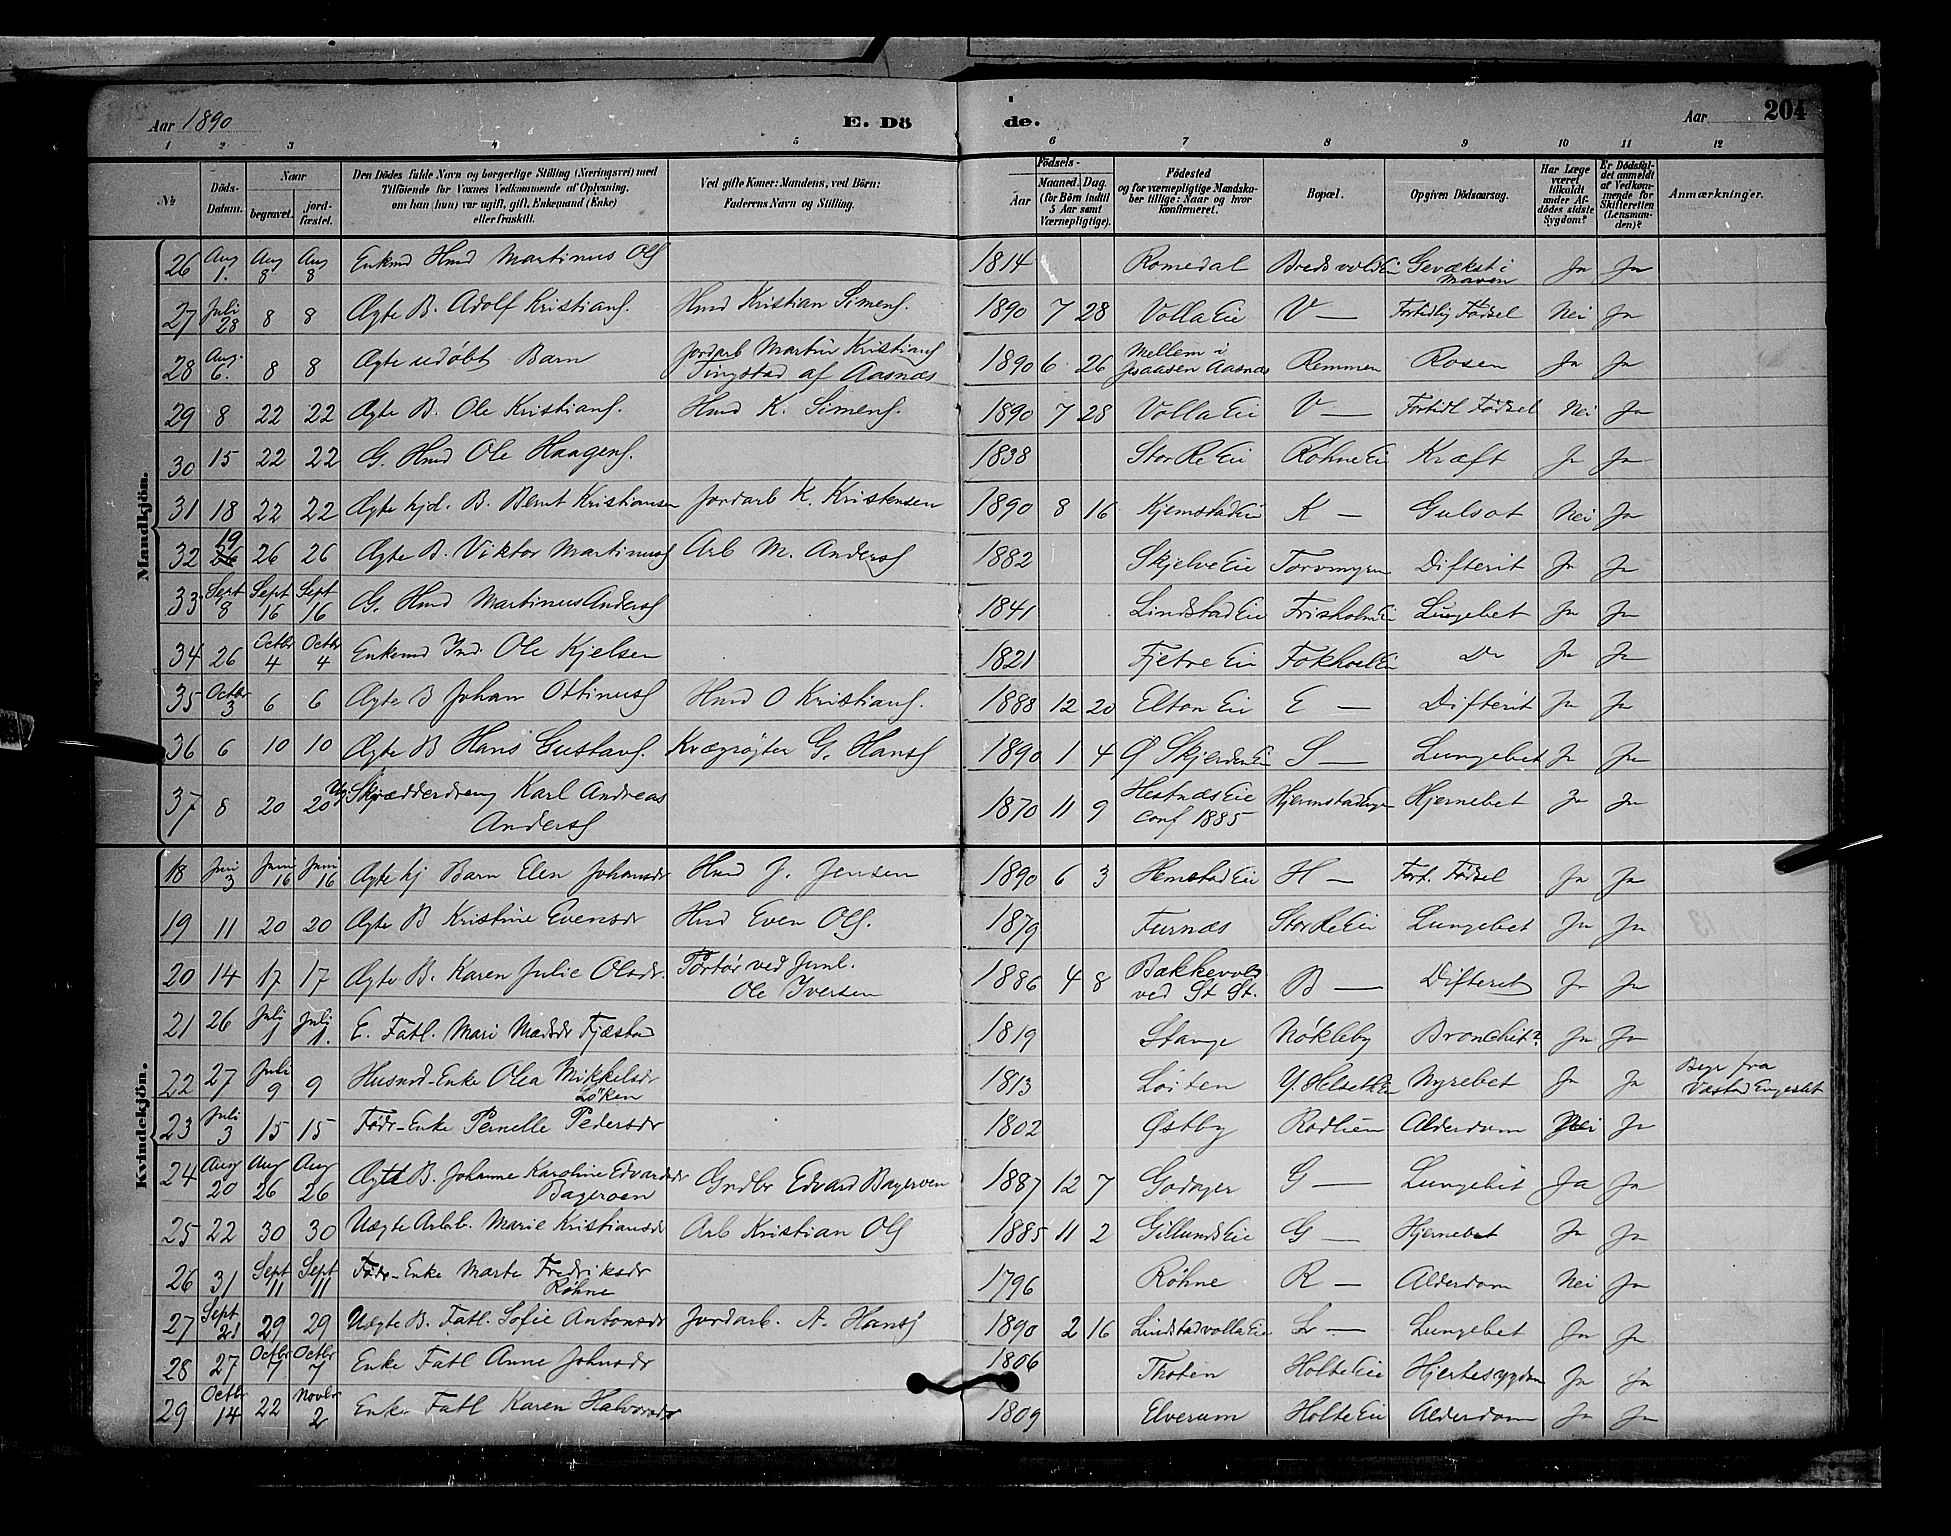 Aar 1890
E. Dö
de.
Aar
204
1 2 3 4 5 6 7 8 9 10 11 12
№
Döds-Datum.
Naar
begravet.
jord-fæstet.
Den Dödes fulde Navn og borgerlige Stilling (Næringsvei) med
Tilföiende for Voxnes Vedkommende af Oplysning,
om han (hun) var ugift, gift, Enkemand (Enke)
eller fraskilt.
Ved gifte Koner: Mandens, ved Börn:
Faderens Navn og Stilling.
Födsels-
Aar
Maaned. Dag.
(for Börn indtil
5 Aar samt
Værnepligtige).
Födested
og for værnepligtige Mandska-
ber tillige: Naar og hvor
konfirmeret.
Bopæl.
Opgiven Dödsaarsag.
Har Læge
været
tilkaldt
under Af-
dödes sidste
Sygdom?
Er Dödsfal-
det anmeldt
af Vedkom-
mende for
Skifteretten
(Lensman-
den)?
Anmærkninger.
Mandkjön.
26 Aug 1. Aug 8 Aug 8 Enkmd Hmd Martinus Ols 1814 Romedal Gevækst i Maven Ja Ja
27 Juli 28 8 8 Ægte B. Adolf Kristians. Hmd Kristian Simens. 1890 7 28 Volla Eie V — Fortidlig Födsel Nei Ja
28 Aug. 6. 8 8 Ægte udöbt Barn Jordarb Martin Kristians Tingstad af Aasnæs 1890 6 26 Mellem i Aasnæs Remmen Rosen Ja Ja
29 8 22 22 Ægte B. Ole Kristians. Hmd K. Simens. 1890 7 28 Volla Eie V — Fortidl Födsel Nei Ja
30 15 22 22 G. Hmd Ole Haagens. 1838 Stor Re Eie Röhne Ei Kræft Ja Ja
31 18 22 22 Ægte hjd. B. Bernt Kristiansen Jordarb K. Kristensen 1890 8 16 Kjemstad Ei K — Gulsot Nei Ja
32 19 26 26 Ægte B. Viktor Martinus Arb M. Anders 1882 Skjelve Eie Torvmyren Difterit Ja Ja
33 Sept 8 Sept 16 Sept 16 G. Hmd Martinus Anders 1841 Lindstad Eie Frisholm Ei Lungebet Ja Ja
34 26 Octbr 4 Octbr 4 Enkemd Ind. Ole Kjelsen 1821 Fjetre Eie Fokhol Ei Do Ja Ja
35 Octbr 3 6 6 Ægte B Johan Ottinus Hmd O Kristians. 1888 12 20 Elton Eie E — Difterit Ja Ja
36 6 10 10 Ægte B Hans Gustavs. Kvægrögter G. Hans 1890 1 4 Ø Skjerden Ei S — Lungebet Ja Ja
37 8 20 20 Ug Skrædderdreng Karl Andreas Anders 1870 11 9 Hestnæs Eie Conf 1885 Hjernebet Ja Ja
Kvindekjön.
18 Juni 3 Juni 16 Juni 16 Ægte hj Barn Elen Johansdr Hmd J. Jensen 1890 6 3 Hemstad Eie H — Fort. Födsel Ja Ja
19 11 20 20 Ægte B Kristine Evensdr Hmd Even Ols. 1879 Furnæs Stor Re Eie Lungebet Ja Ja
20 14 17 17 Ægte B. Karen Julie Olsdr. Portör ved Jernb. Ole Iversen 1886 4 8 Bakkevold ved St St. B — Difterit Ja Ja
21 26 Juli 1 Juli 1. E. Fatl. Mari Madsdr Fjæstad 1819 Stange Nökleby Bronchit? Ja Ja
22 27 Juli 9 9 Husmd-Enke Olea Mikkelsdr Löken 1813 Löiten Nyrebet Ja Ja
23 Juli 3 15 15 Föder-Enke Pernelle Pedersdr 1802 Østby Rodlien Alderdom Nei Ja
24 Aug 20 Aug 26 Aug 26 Ægte B. Johanne Karoline Edvardsdr Bageroen Grdbr Edvard Bageroen 1887 12 7 Godager G — Lungebet Ja Ja
25 22 30 30 Uægte Arbb. Marie Kristiansdr Arb Kristian Ols 1885 11 2 Gillunds Eie G — Hjernebet Ja Ja
26 31 Sept 11 Sept 11 Föder-Enke Marte Fredriksdr Röhne 1796 Röhne R — Alderdom Nei Ja
27 Sept 21 29 29 Uægte B. Fatl. Sofie Antonsdr Jordarb. A. Hans 1890 2 16 Lindstadvolla Eie L — Lungebet Ja Ja
28 27 Octbr 7 Octbr 7 Enke Fatl Anne Johnsdr 1806 Thoten Holte Eie Hjertesygdom Ja Ja
29 Octbr 14 22 Novbr 2 Enke Fatl Karen Halvorsdr 1809 Elverum Holte Eie Alderdom Ja Ja